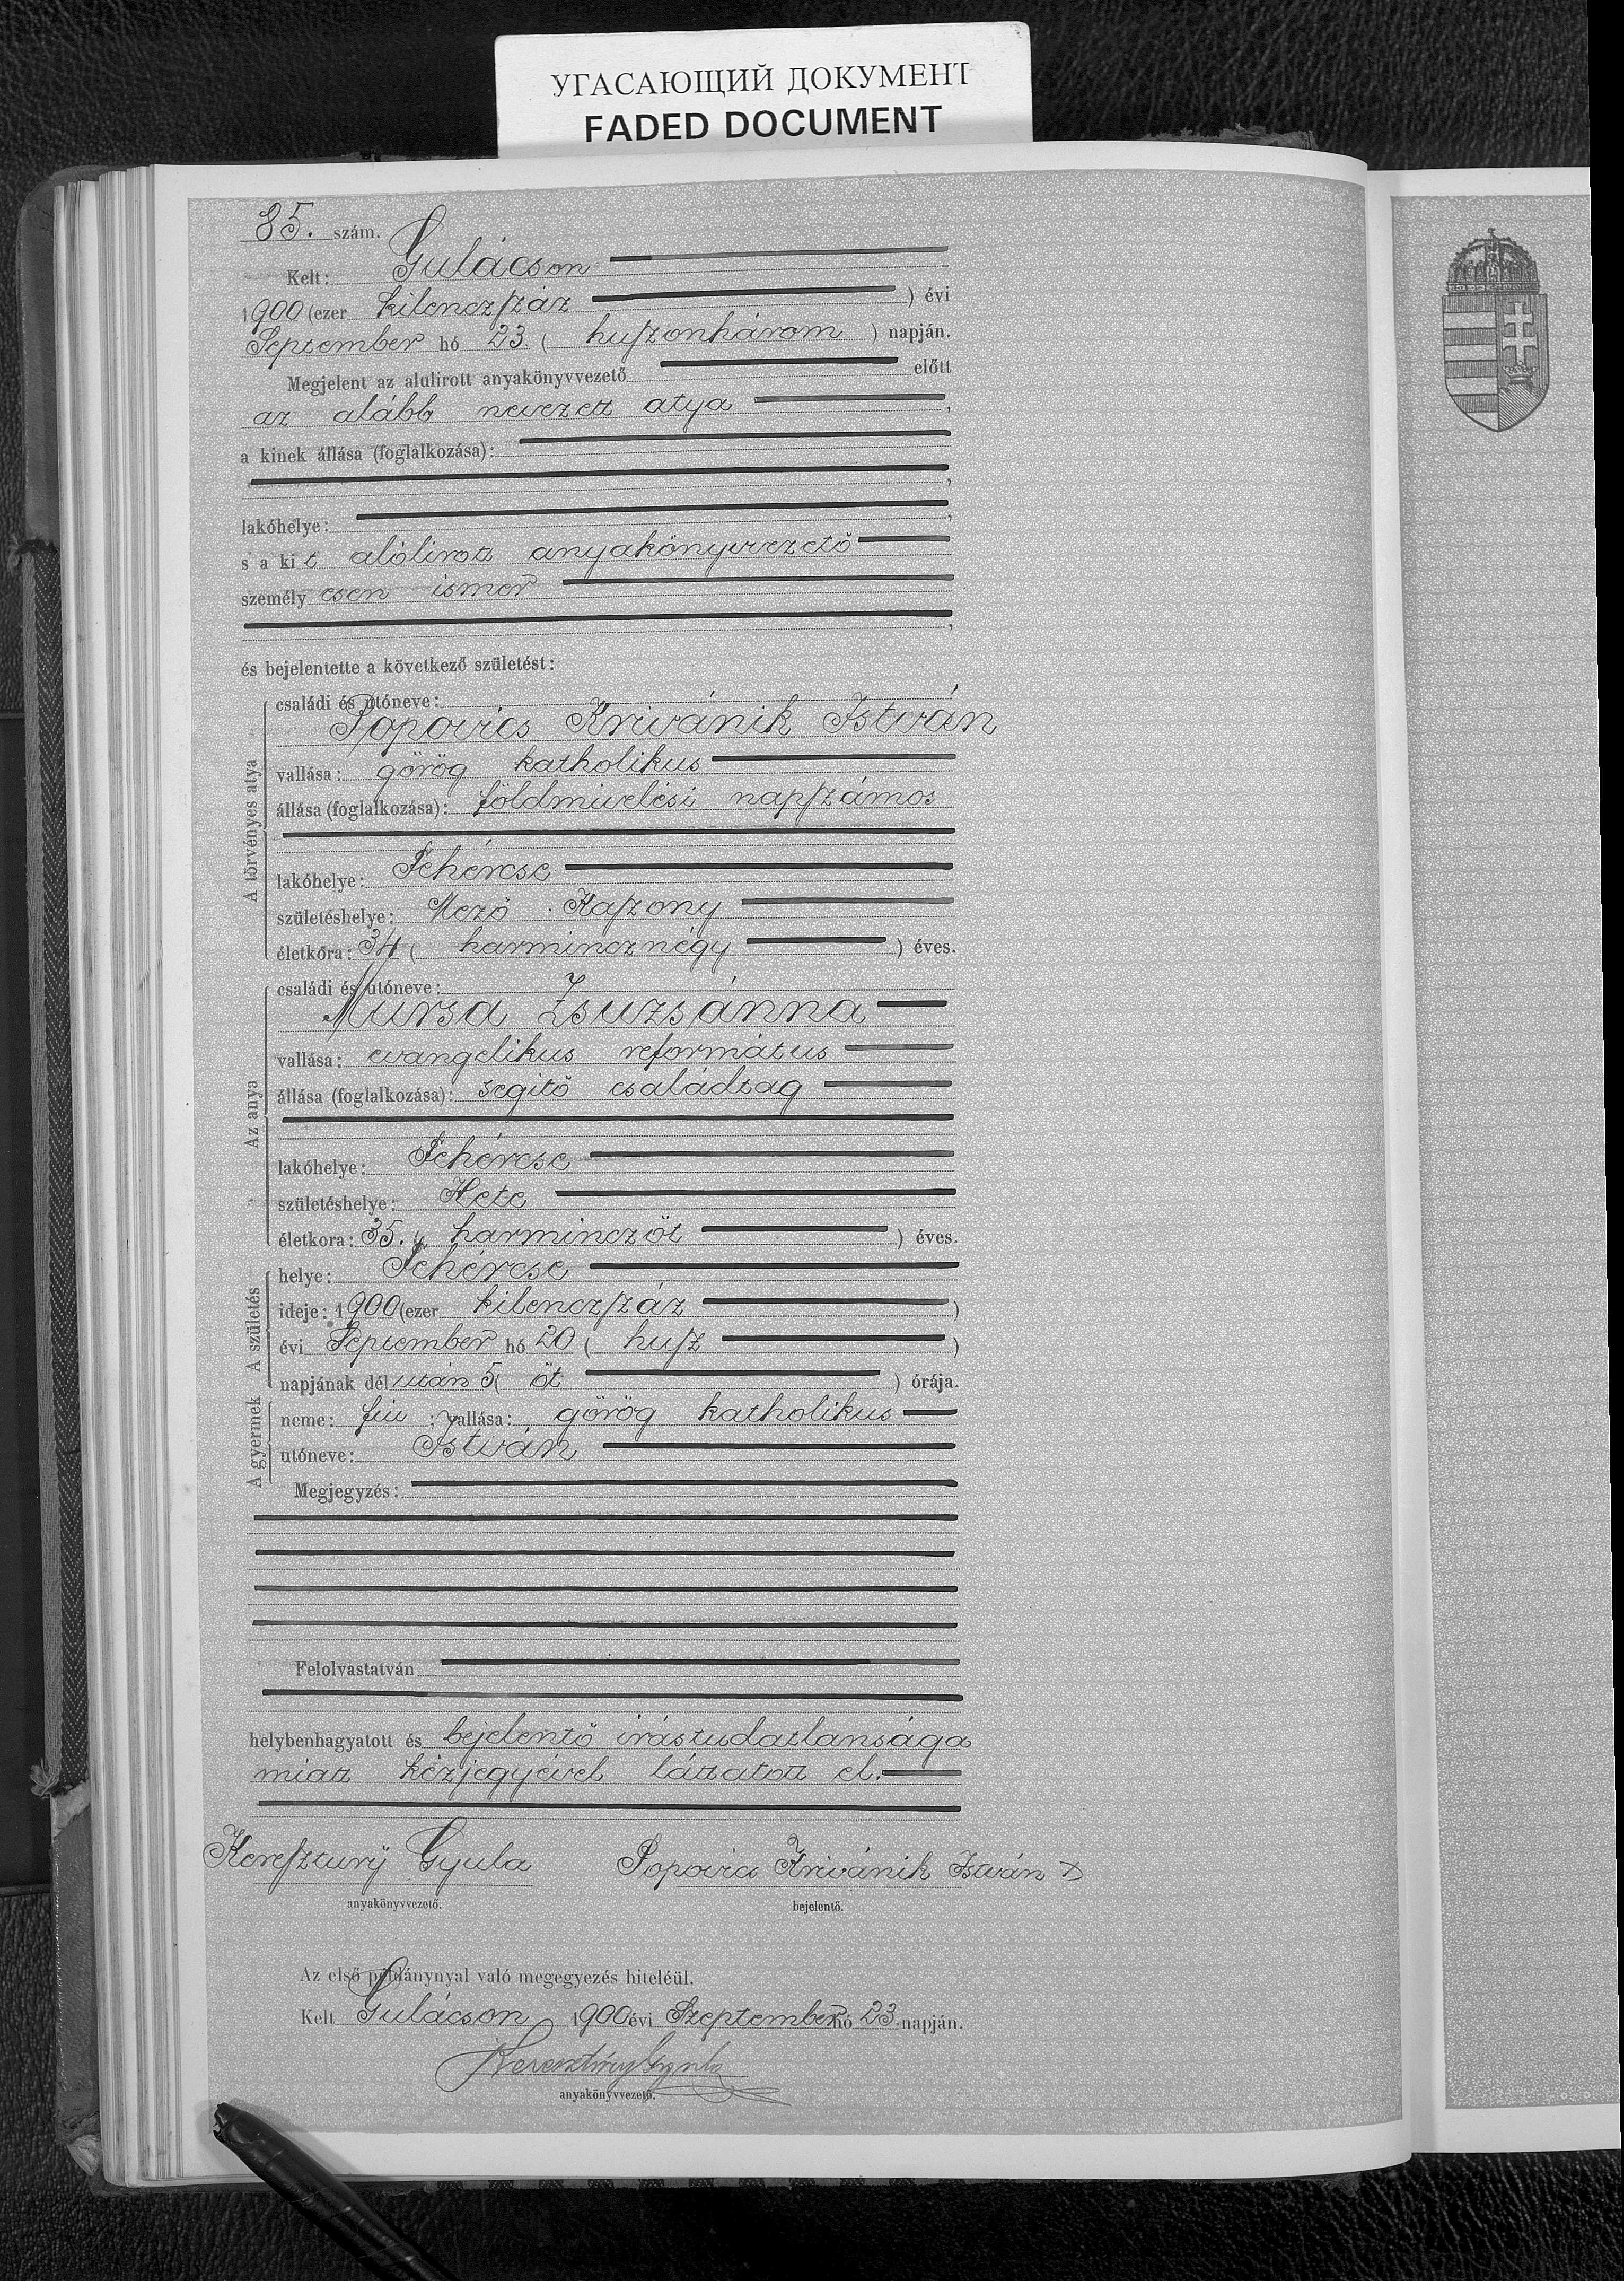 УГАСАЮЩИЙ ДОКУМЕНТ
FADED DOCUMENT
85. szám.
Kelt: Gulácson
1900 (ezer kilenczszáz ) évi
September hó 23 ( huszonhárom ) napján.
Megjelent az alulirott anyakönyvvezető előtt
az alább nevezett atya ,
a kinek állása (foglalkozása):
,
lakóhelye: ,
s a kit alólirott anyakönyvvezető
személyesen ismer
,
és bejelentette a következő születést:
A törvényes atya
családi és utóneve:
Popovics Krivánik István
vallása: görög katholikus
állása (foglalkozása): földmivelési napszámos
lakóhelye: Fehércse
születéshelye: Mező Kaszony
életkora: 34 ( harmincznégy ) éves.
Az anya
családi és utóneve:
Mursa Zsuzsánna
vallása: evangelikus református
állása (foglalkozása): segitő családtag
lakóhelye: Fehércse
születéshelye: Hete
életkora: 35. ( harminczöt ) éves.
A születés
helye: Fehércse
ideje: 1900 (ezer kilenczszáz )
évi September hó 20 ( husz )
napjának délután 5 ( öt ) órája.
A gyermek
neme: fiu ; vallása: görög katholikus
utóneve: István
Megjegyzés:
Felolvastatván
helybenhagyatott és bejelentő irástudatlansága
miatt kézjegyével láttatott el.
Keresztury Gyula Popovics Krivánik István x
anyakönyvvezető. bejelentő.
Az első példánynyal való megegyezés hiteléül.
Kelt Gulácson 1900 évi Szeptember hó 23 napján.
Keresztury Gyula
anyakönyvvezető.